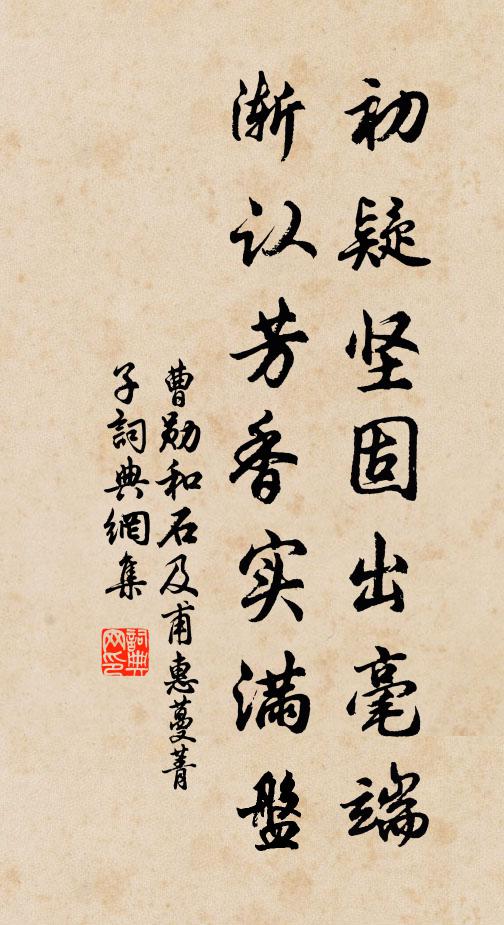 初疑坚固出毫端
渐认芳香实满盤
曹勋和石及甫惠蔓菁
子詞典網集
詞典
网印